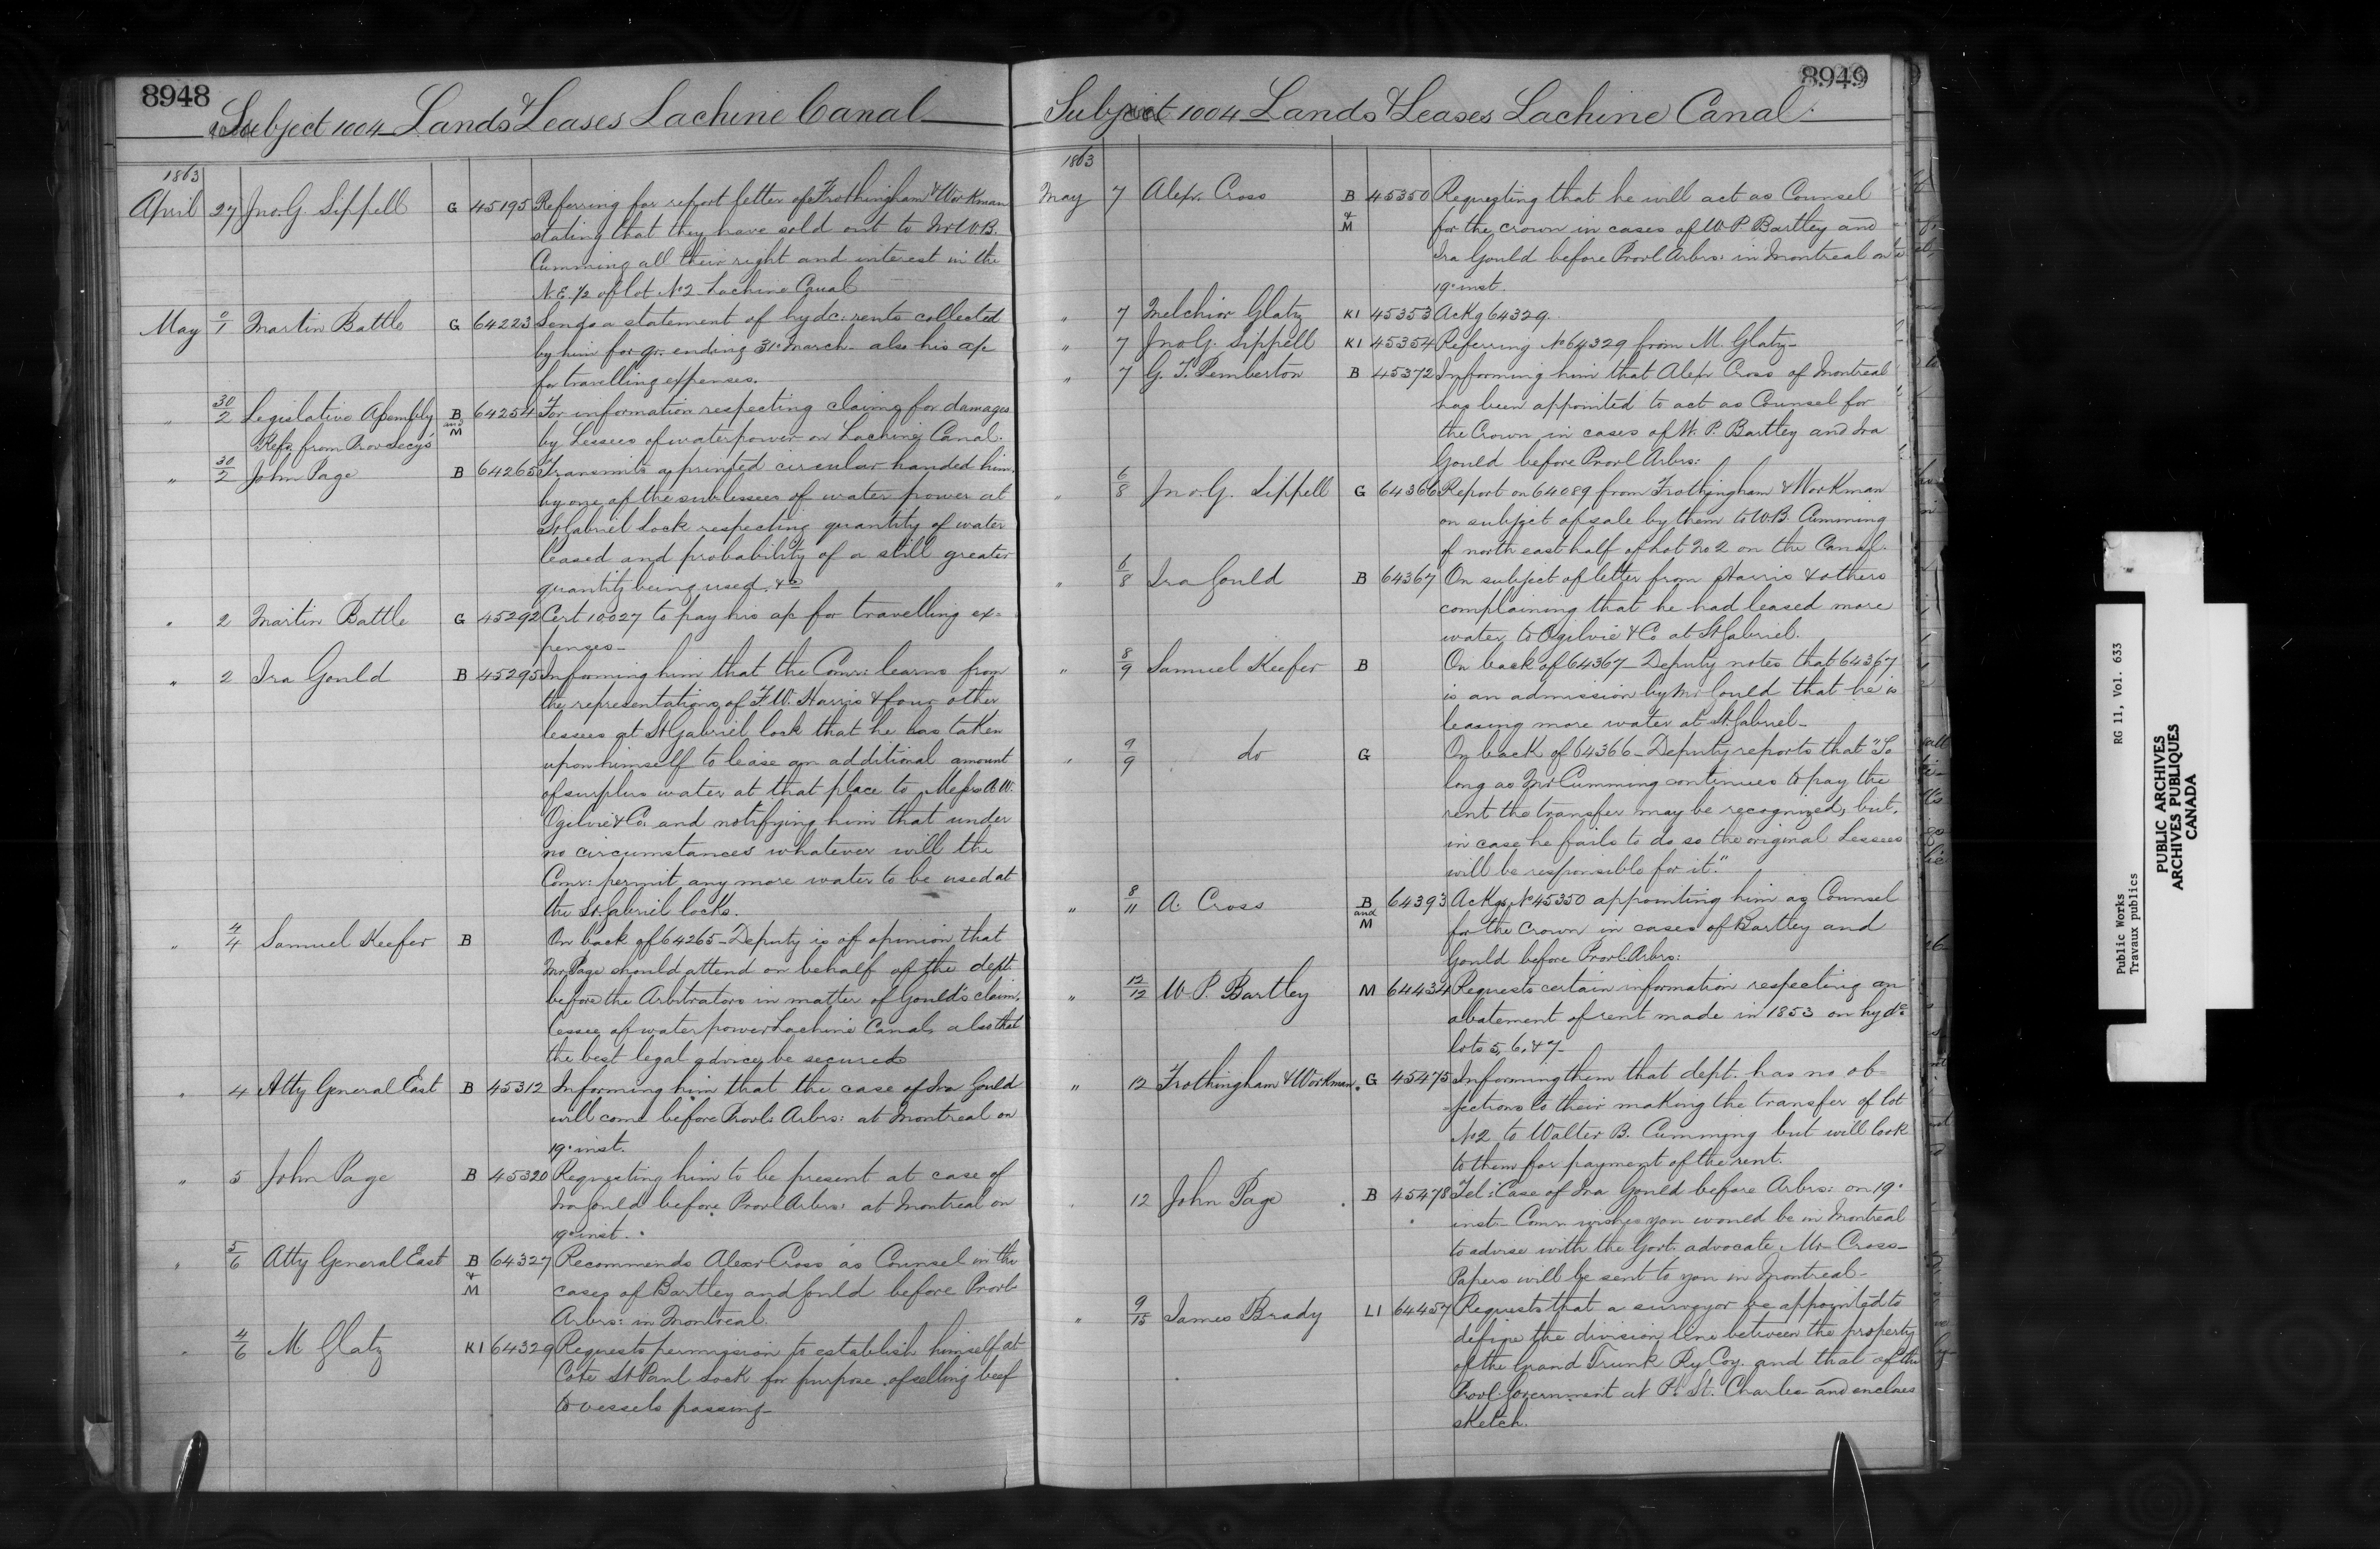 8948
Subject 1004 Lands & Leases Lachine Canal
1863
April 27 Jno. G Sippell G 45195 Referring for report letter of Frothingham & Workman
stating that they have sold out to Mr W.B.
Cumming all their right and interest in the
N.E. ½ of lot No 2 Lachine Canal
May 1 Martin Battle G 64223 Sends a statement of hydc: rents collected
by him for qr. ending 31st March also his a/c
for travelling expenses.
" 30/2 Legislative Assembly B and M 64254 For information respecting claims for damages
Refce. from Prov Secy's by Lessees of water power on Lachine Canal.
" 30/2 John Page B 64265 Transmits a printed circular handed him
by one of the sub lessees of water power at
St Gabriel Lock respecting quantity of water
leased and probability of a still greater
quantity being used &c
" 2 Martin Battle G 45292 Cert 10027 to pay his a/c for travelling ex-
penses
" 2 Ira Gould B 45295 Informing him that the Comr: learns from
the representations of F W. Harris & four other
lessees at St Gabriel lock that he has taken
upon himself to lease an additional amount
of surplus water at that place to Messrs A. W.
Ogilvie & Co. and notifying him that under
no circumstances whatever will the
Comr: permit any more water to be used at
the St. Gabriel locks.
" 4/4 Samuel Keefer B On back of 64265 - Deputy is of opinion that
Mr Page should attend on behalf of the dept.
before the Arbitrators in matter of Gould's claim,
lessee of water power Lachine Canal, also that
the best legal advice be secured
" 4 Atty General East B 45312 Informing him that the case of Ira Gould
will come before Provl. Arbrs: at Montreal on
19th inst.
" 5 John Page B 45320 Requesting him to be present at case of
Ira Gould before Provl Arbrs: at Montreal on
19th inst.
" 5/6 Atty General East B & M 64327 Recommends Alexr Cross as Counsel in the
cases of Bartley and Gould before Provl.
Arbrs: in Montreal
" 4/6 M Glatz K1 64329 Requests permission to establish himself at
Cote St Paul Lock for purpose of selling beef
to vessels passing
8949
Subject 1004 Lands & Leases Lachine Canal.
1863
May 7 Alexr. Cross B & M 45350 Requesting that he will act as Counsel
for the crown in cases of W. P. Bartley and
Ira Gould before Provl Arbrs: in Montreal on
19th inst.
" 7 Melchior Glatz K1 45353 Ackg 64329.
" 7 Jno. G. Sippell K1 45354 Referring No 64329 from M. Glatz
" 7 G. T. Pemberton B 45372 Informing him that Alexr Cross of Montreal
has been appointed to act as Counsel for
the Crown in cases of W. P. Bartley and Ira
Gould before Provl Arbrs:
" 6/8 Jno. G. Sippell G 64366 Report on 64089 from Frothingham & Workman
on subject of sale by them to W.B. Cumming
of north east half of Lot No 2 on the Canal.
" 6/8 Ira Gould B 64367 On subject of letter from Harris & others
complaining that he had leased more
water to Ogilvie & Co at St Gabriel.
" 8/9 Samuel Keefer B On back of 64367 - Deputy notes that 64367
is an admission by Mr Gould that he is
leasing more water at St. Gabriel -
" 9/9 do G On back of 64366 - Deputy reports that "So
long as Mr Cumming continues to pay the
rent the transfer may be recognized, but,
in case he fails to do so the original Lessees
will be responsible for it."
" 8/11 A. Cross B and M 64393 Ackgs No 45350 appointing him as Counsel
for the Crown in cases of Bartley and
Gould before Provl Arbrs:
" 12/12 W. P. Bartley M 64434 Requests certain information respecting an
abatement of rent made in 1853 on hydc
lots 5, 6, & 7 -
" 12 Frothingham & Workman. G 45475 Informing them that dept. has no ob-
jections to their making the transfer of lot
No 2 to Walter B. Cumming but will look
to them for payment of the rent.
" 12 John Page B 45478 Tel: Case of Ira Gould before Arbrs: on 19th
inst - Comr wishes you would be in Montreal
to advise with the Govt. advocate Mr Cross -
Papers will be sent to you in Montreal -
" 9/15 James Brady L1 64457 Requests that a surveyor be appointed to
define the division line between the property
of the Grand Trunk Ry Coy. and that of the
Provl Government at Pt. St. Charles and encloses
sketch.
Public Works RG 11, Vol. 633
Travaux publics
PUBLIC ARCHIVES
ARCHIVES PUBLIQUES
CANADA